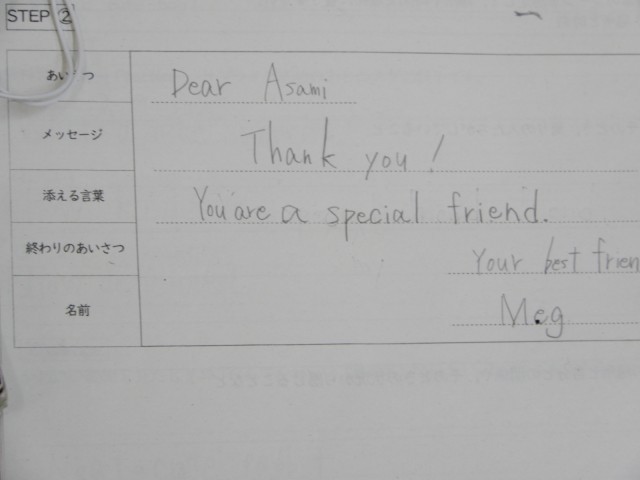 STEP ②
あいさつ Dear Asami
メッセージ Thank you!
添える言葉 You are a special friend.
終わりのあいさつ Your best frien
名前 Meg